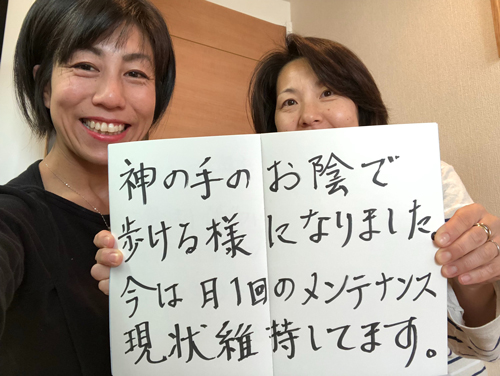 神の手のお陰で
歩ける様になりました
今は月1回のメンテナンス
現状維持してます。